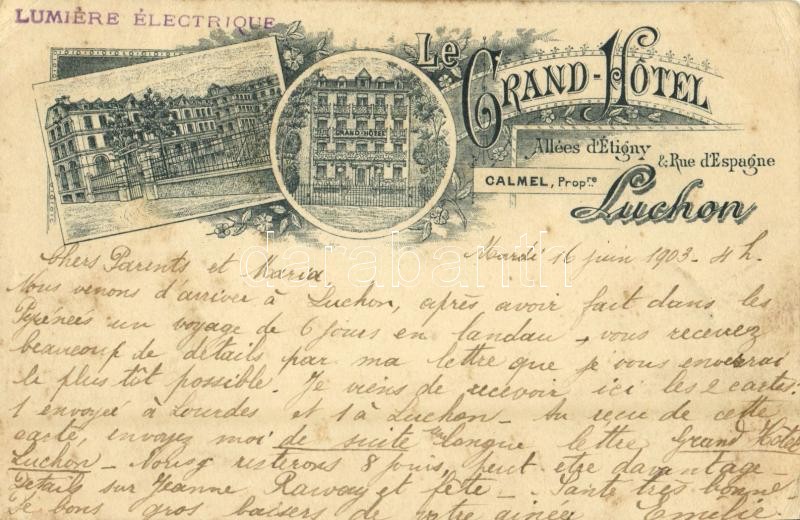 LUMIÈRE ÉLECTRIQUE
Le
GRAND-HÔTEL
GRAND-HÔTEL
Allées d'Étigny
& Rue d'Espagne
CALMEL, Propre
Luchon
darabanth
Mardi 16 juin 1903 - 4 h.
Chers Parents et Maria
Nous venons d'arriver à Luchon, après avoir fait dans les
Pyrénées un voyage de 6 jours en landau, vous recevez
beaucoup de détails par ma lettre que je vous enverrai
le plus tôt possible. Je viens de recevoir ici les 2 cartes.
1 envoyé à Lourdes et 1 à Luchon - Au reçu de cette
carte, envoyez moi de suite longue lettre Grand Hôtel
Luchon - Nous resterons 8 jours, peut être davantage -
Détails sur Jeanne et fête - Santé très bonne -
Je bons gros baisers de votre ainée Emélie